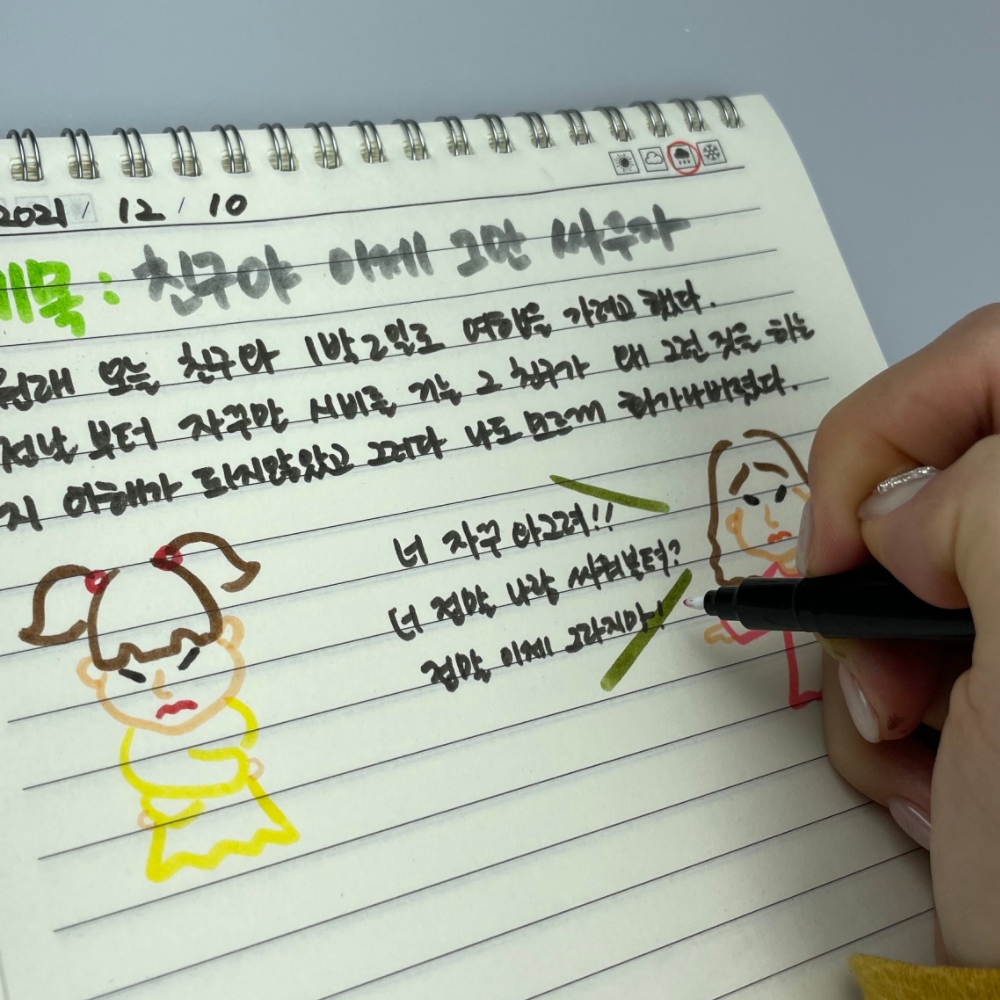 2021 / 12 / 10
제목 : 친구야 이제 그만 싸우자
원래 오늘 친구와 1박2일로 여행을 가려고 했다.
전날 부터 자꾸만 시비를 거는 그 친구가 왜 그런 것을 하는
지 이해가 되지않았고 그러다 나도 모르게 화가나버렸다.
너 자꾸 야그려!!
너 정말 나랑 싸워볼텨?
정말 이제 그라지마!